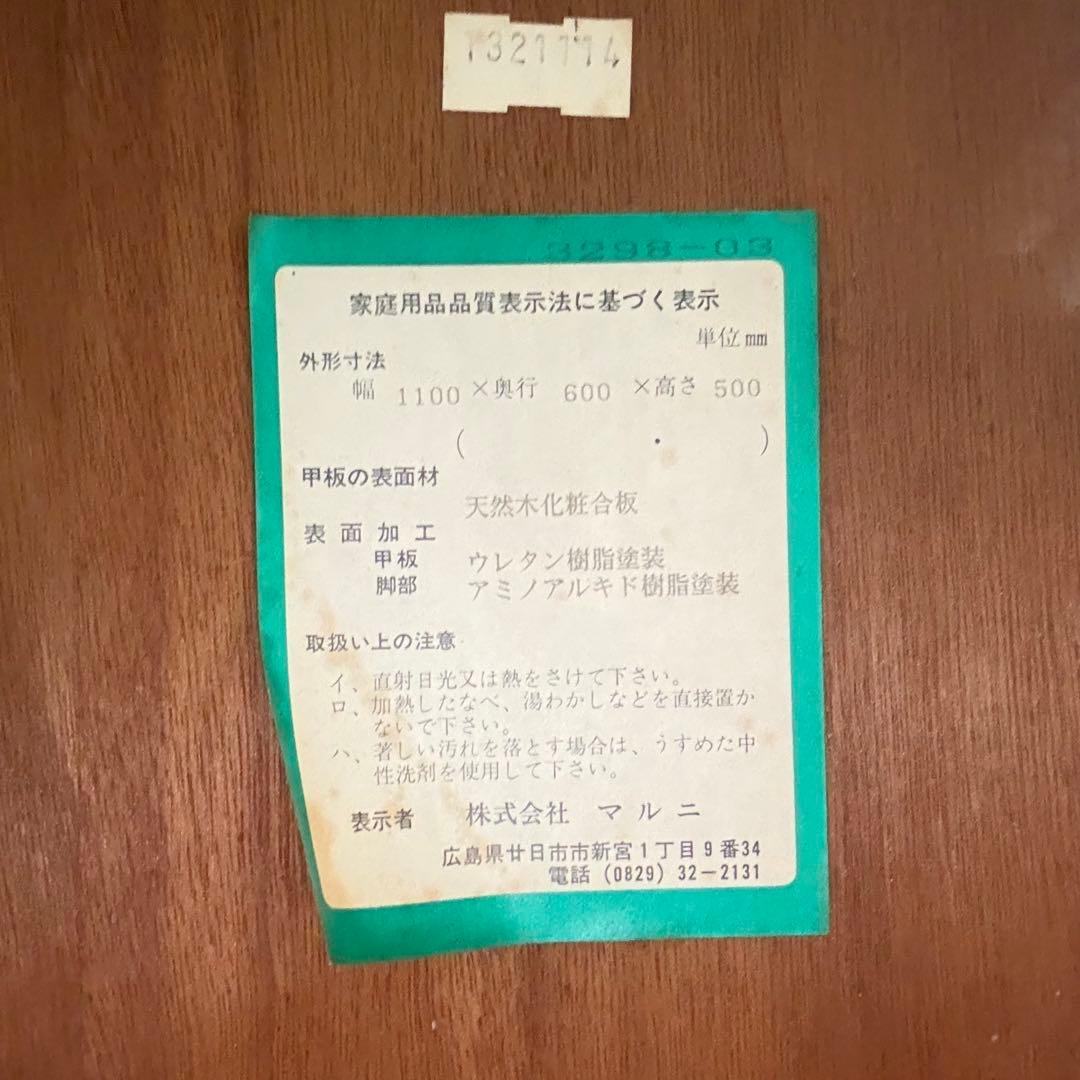 1321114
3298-03
家庭用品品質表示法に基づく表示
単位mm
外形寸法
幅 1100 ×奥行 600 ×高さ 500
( ・ )
甲板の表面材
天然木化粧合板
表面加工
甲板 ウレタン樹脂塗装
脚部 アミノアルキド樹脂塗装
取扱い上の注意
イ、直射日光又は熱をさけて下さい。
ロ、加熱したなべ、湯わかしなどを直接置か
ないで下さい。
ハ、著しい汚れを落とす場合は、うすめた中
性洗剤を使用して下さい。
表示者 株式会社 マルニ
広島県廿日市市新宮1丁目9番34
電話 (0829) 32-2131